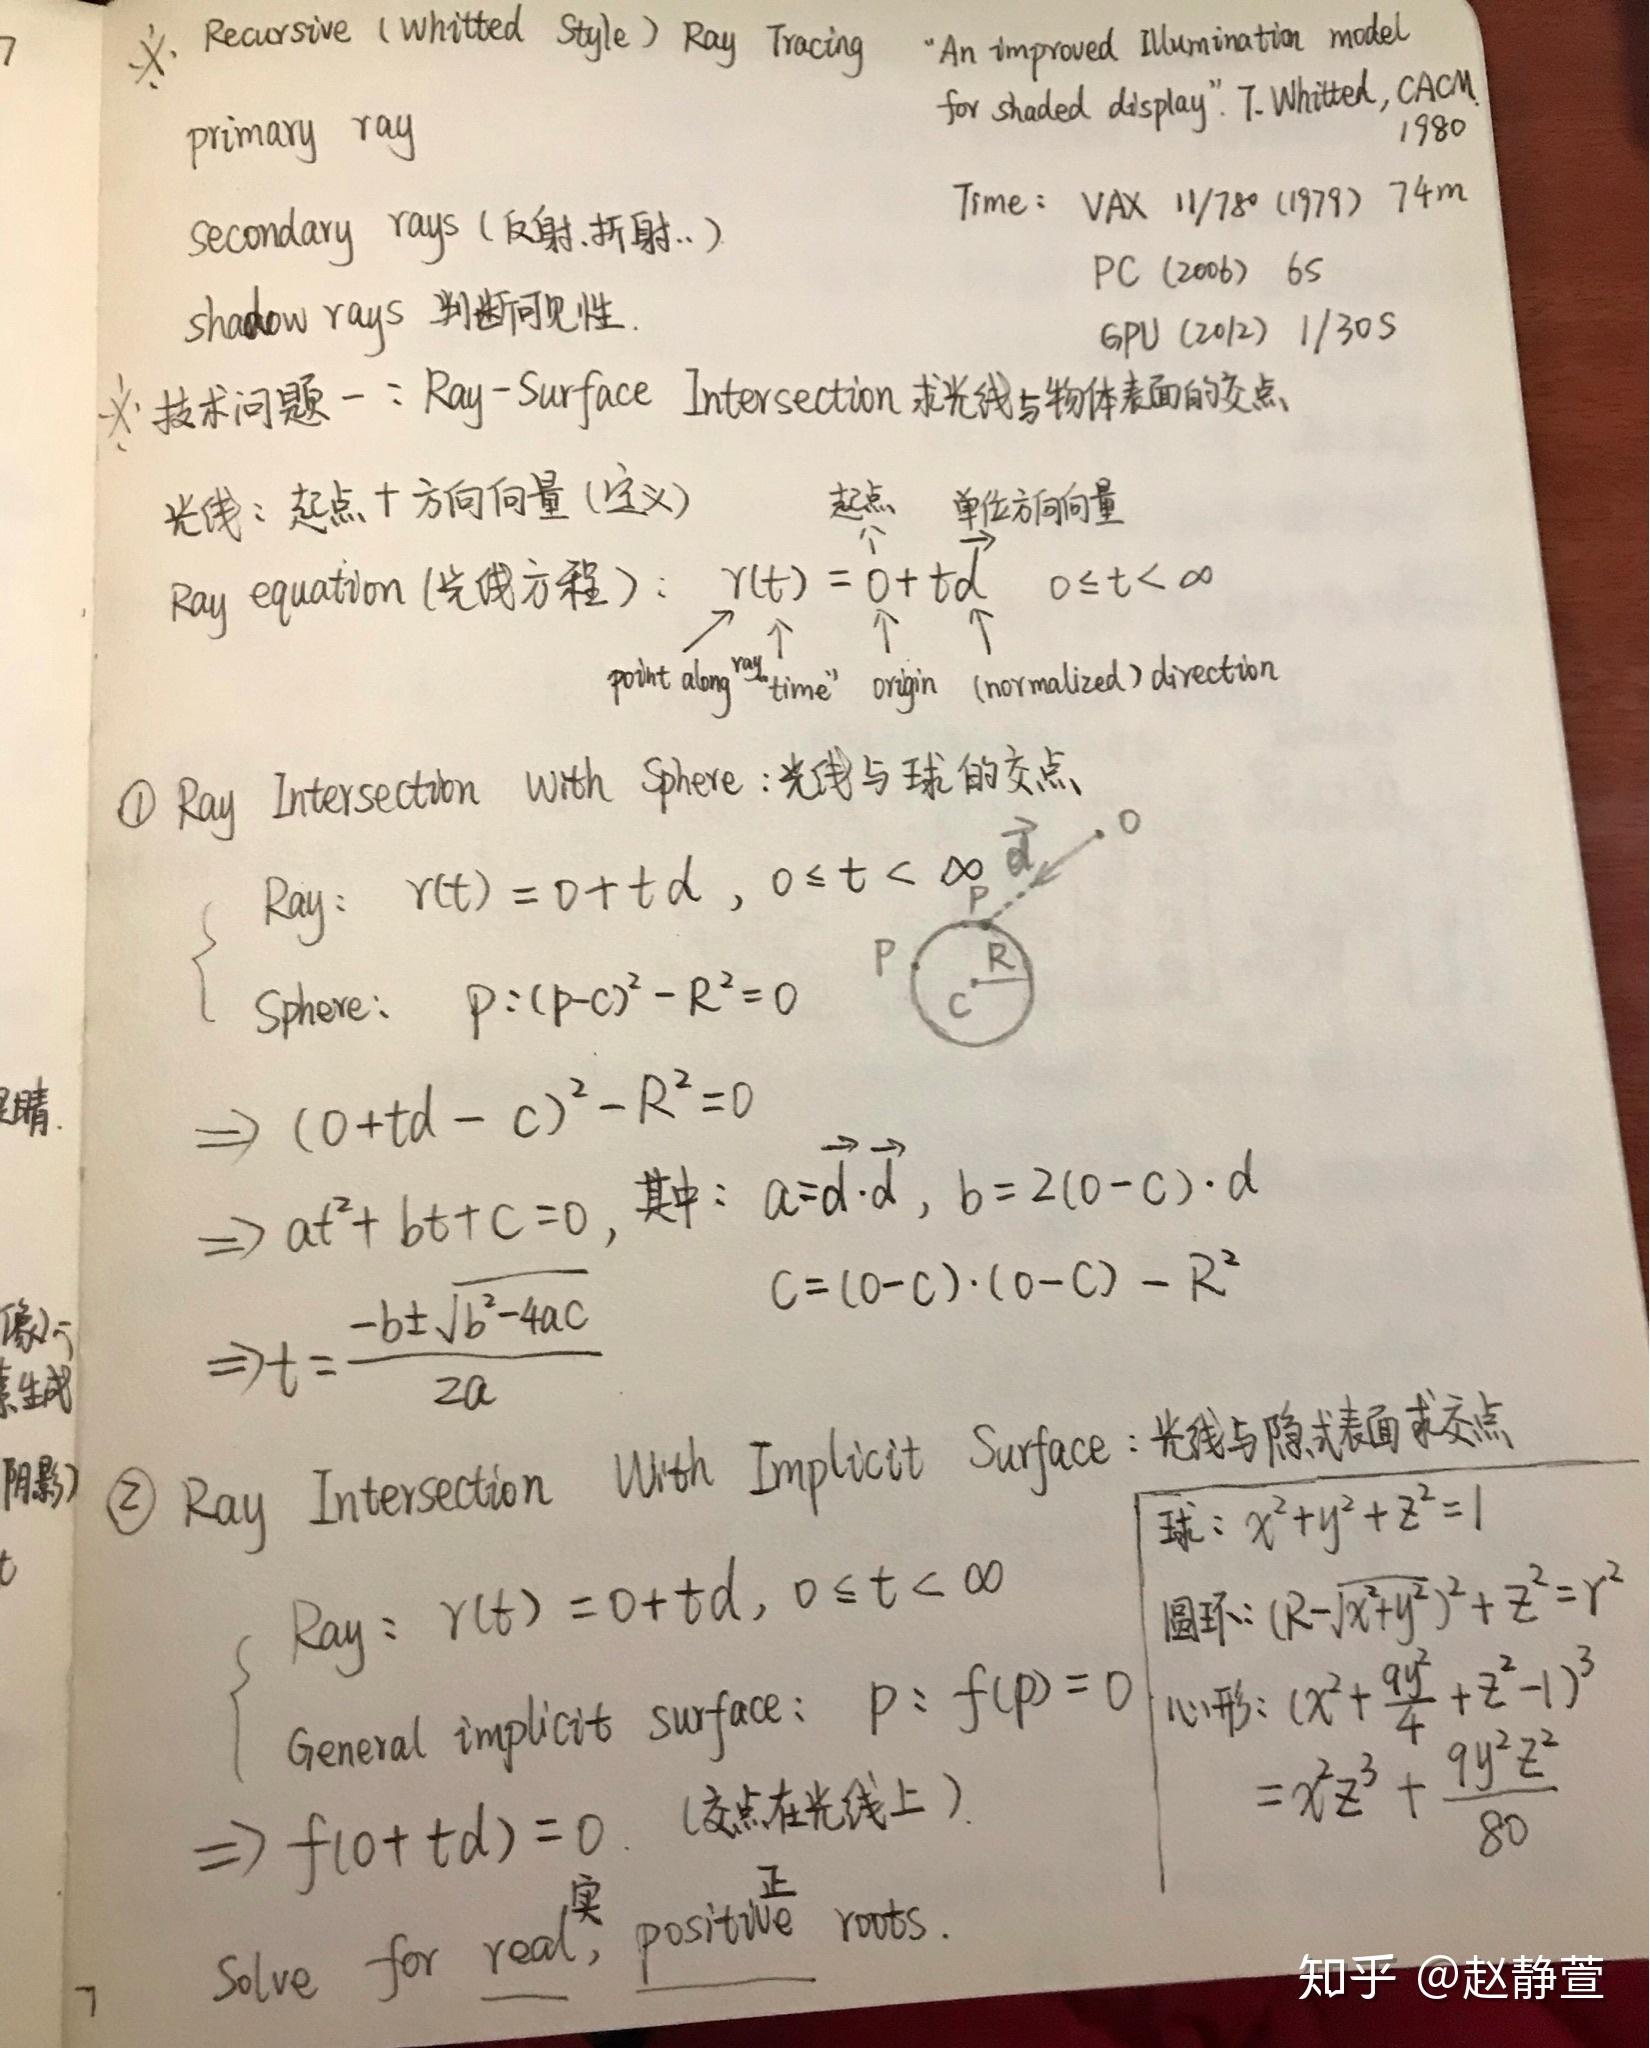 7
※ Recursive (Whitted Style) Ray Tracing
"An improved Illumination model
for shaded display". T. Whitted, CACM.
1980
primary ray
secondary rays (反射、折射..)
shadow rays 判断可见性.
Time: VAX 11/780 (1979) 74m
PC (2006) 6s
GPU (2012) 1/30s
※ 技术问题一: Ray-Surface Intersection 求光线与物体表面的交点
光线: 起点+方向向量(定义)
起点 单位方向向量
↑
Ray equation (光线方程): r(t) = o + td⃗ 0≤t<∞
↗ ↑ ↑ ↑
point along ray "time" origin (normalized) direction
① Ray Intersection With Sphere: 光线与球的交点
Ray: r(t) = o + td, 0≤t<∞
Sphere: p: (p-c)² - R² = 0
d⃗ O
P
P R
C
⇒ (o+td-c)² - R² = 0
⇒ at² + bt + c = 0, 其中: a = d⃗·d⃗, b = 2(o-c)·d
c = (o-c)·(o-c) - R²
⇒ t = (-b±√(b²-4ac))/2a
② Ray Intersection With Implicit Surface: 光线与隐式表面求交点
Ray: r(t) = o + td, 0≤t<∞
General implicit surface: p: f(p) = 0
⇒ f(o+td) = 0. (交点在光线上).
实 正
Solve for real, positive roots.
球: x²+y²+z²=1
圆环: (R-√(x²+y²))²+z²=r²
心形: (x²+9y²/4+z²-1)³
= x²z³ + 9y²z²/80
晴.
像)
生成
阴影)
t
7
知乎 @赵静萱